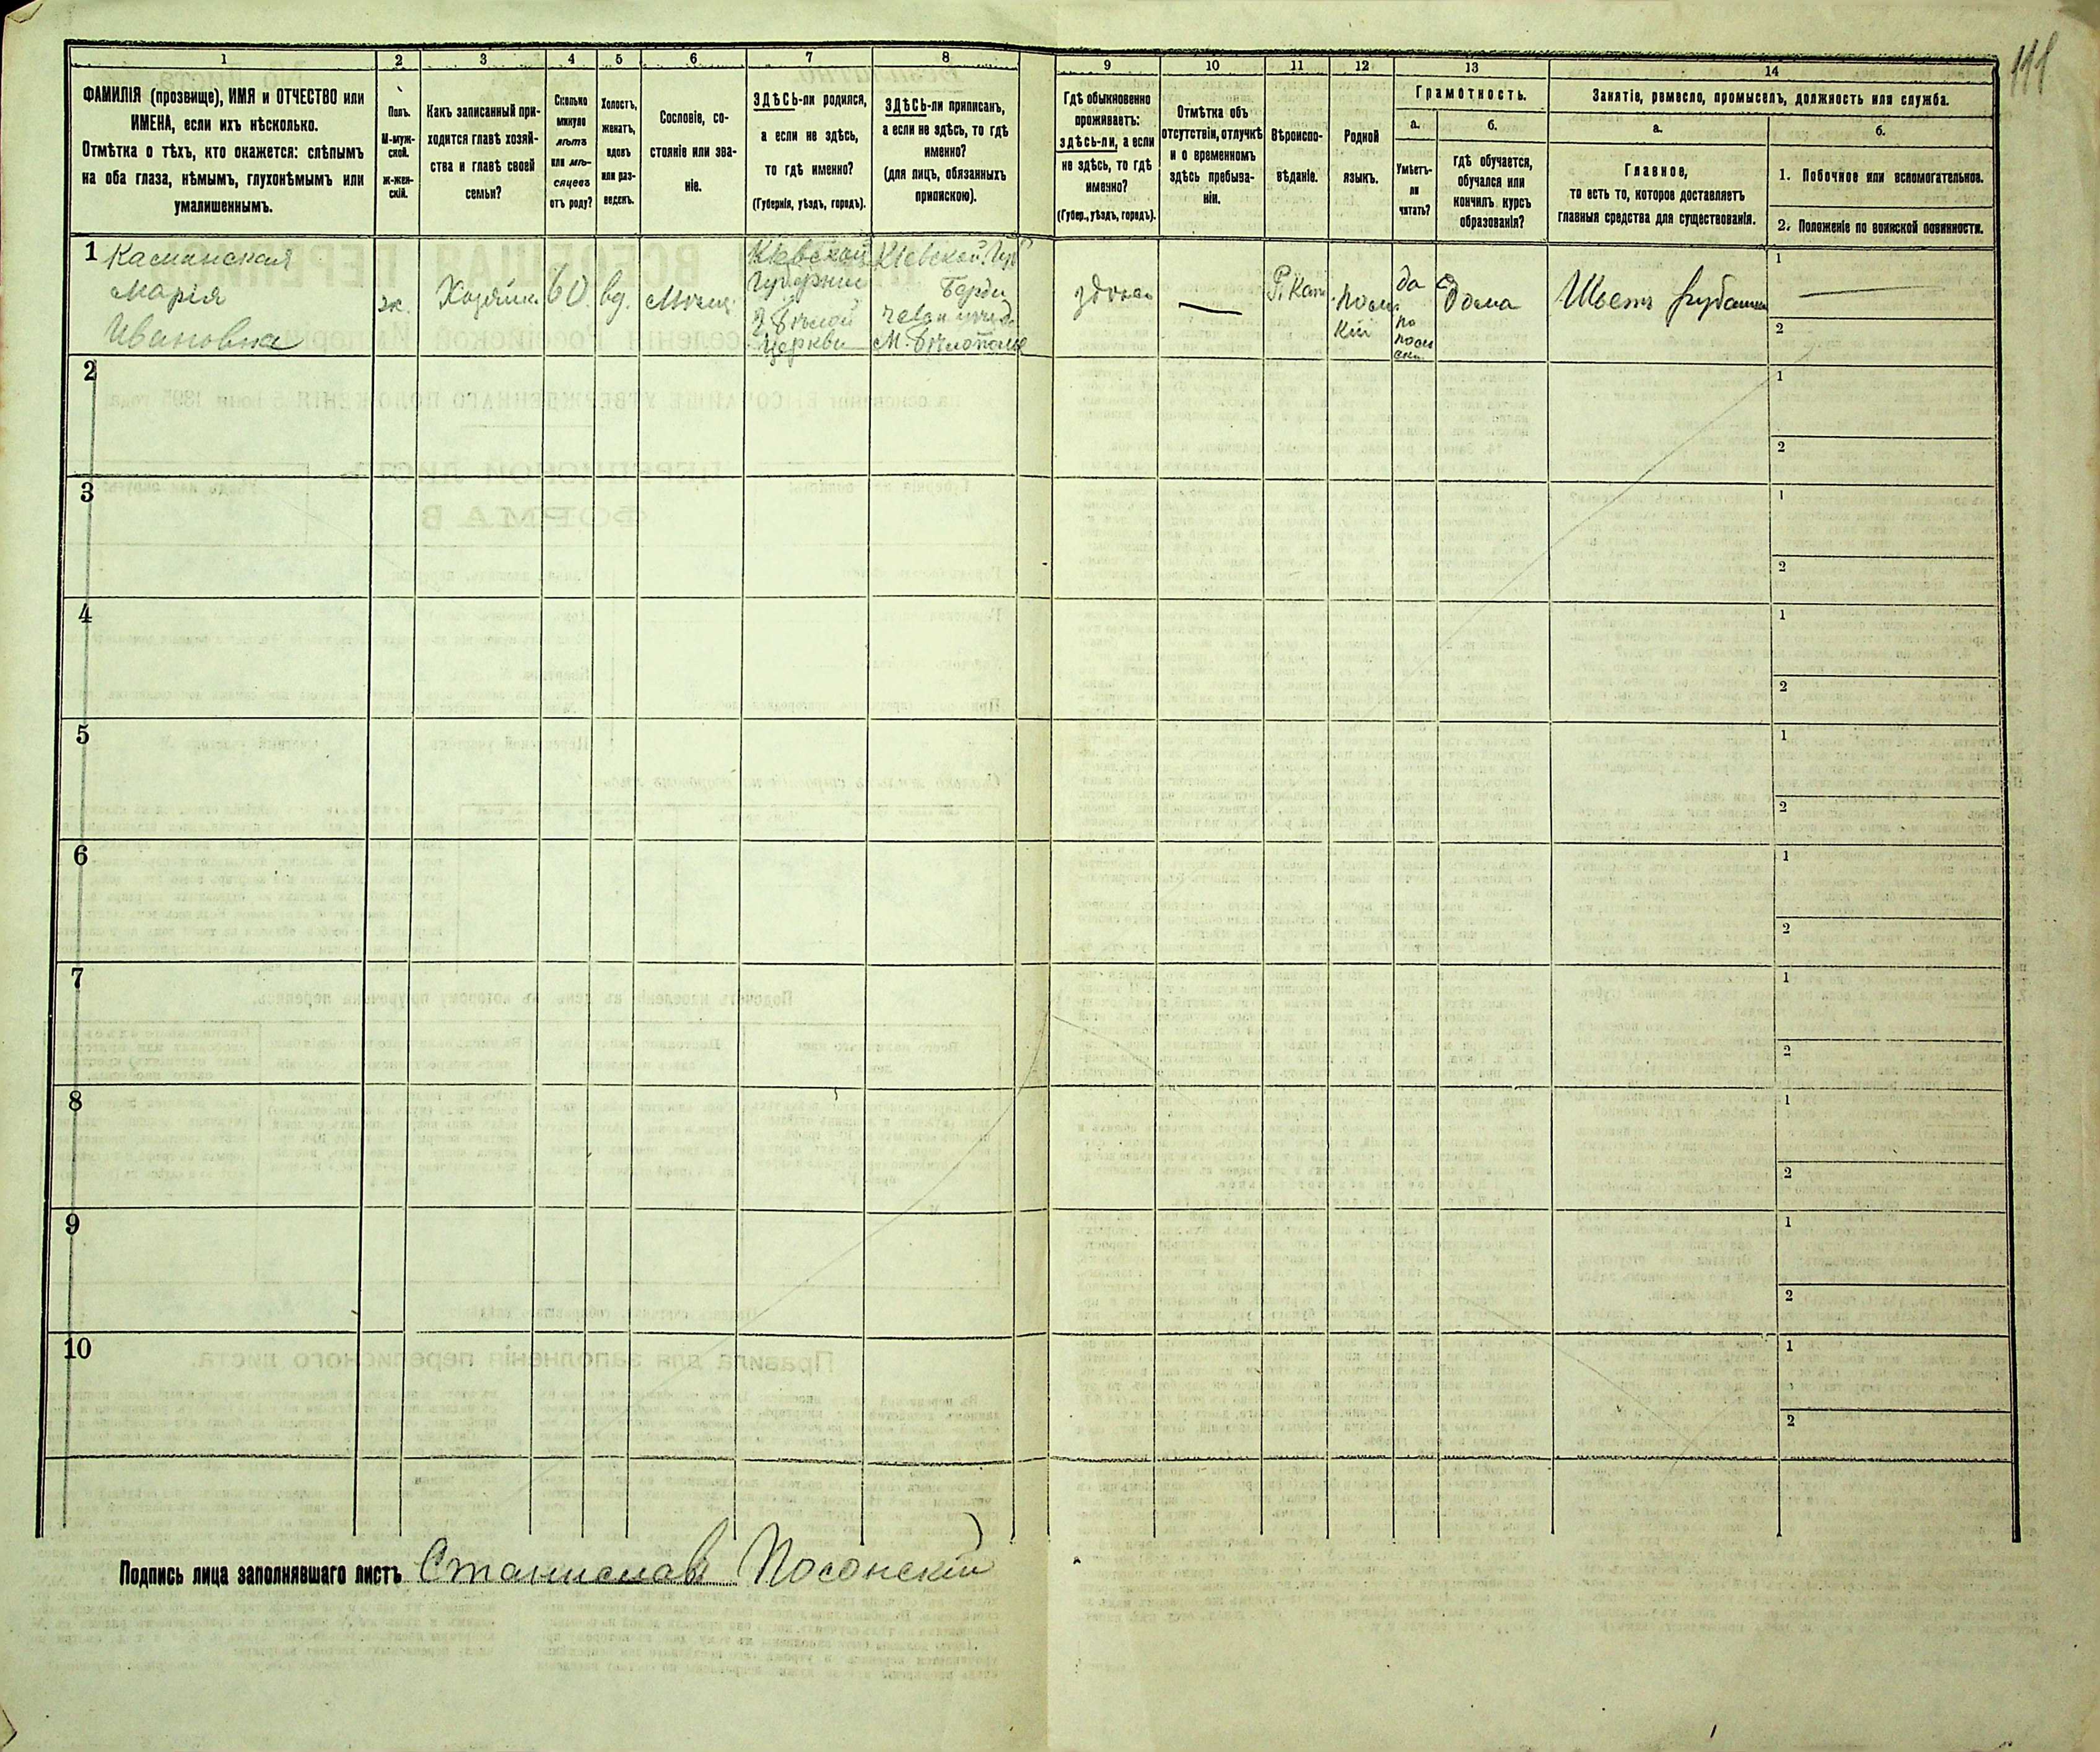 1
2
3
4
5
6
7
8
9
10
11
12
13
14
ФАМИЛІЯ (прозвище), ИМЯ и ОТЧЕСТВО или
ИМЕНА, если ихъ нѣсколько.
Отмѣтка о тѣхъ, кто окажется: слѣпымъ
на оба глаза, нѣмымъ, глухонѣмымъ или
умалишеннымъ.
Полъ.
М-муж-
ской.
ж-жен-
скій.
Какъ записанный при-
ходится главѣ хозяй-
ства и главѣ своей
семьи?
Сколько
минуло
лѣтъ
или мѣ-
сяцевъ
отъ роду?
Холостъ,
женатъ,
вдовъ
или раз-
веденъ.
Сословіе, со-
стояніе или зва-
ніе.
ЗДѢСЬ-ли родился,
а если не здѣсь,
то гдѣ именно?
(Губернія, уѣздъ, городъ).
ЗДѢСЬ-ли приписанъ,
а если не здѣсь, то гдѣ
именно?
(для лицъ, обязанныхъ
припискою).
Гдѣ обыкновенно
проживаетъ:
здѣсь-ли, а если
не здѣсь, то гдѣ
именно?
(Губер., уѣздъ, городъ).
Отмѣтка объ
отсутствіи, отлучкѣ
и о временномъ
здѣсь пребыва-
ніи.
Вѣроиспо-
вѣданіе.
Родной
языкъ.
Грамотность.
а.
Умѣетъ-
ли
читать?
б.
гдѣ обучается,
обучался или
кончилъ курсъ
образованія?
Занятіе, ремесло, промыселъ, должность или служба.
а.
Главное,
то есть то, которое доставляетъ
главныя средства для существованія.
б.
1. Побочное или вспомогательное.
2. Положеніе по воинской повинности.
1
Марія
Ивановна
ж.
Хозяйка
60
вд.
Кіевской
Губерніи
Бѣлой
Церкви
Кіевской Губ
Берди
М. Бѣлополье
здѣсь
Р. Кат
Поль
кій
да
по
поль
ски
Дома
Шьетъ рубашки
1
2
2
1
2
3
1
2
4
1
2
5
1
2
6
1
2
7
1
2
8
1
2
9
1
2
10
1
2
Подпись лица заполнявшаго листъ Станиславъ